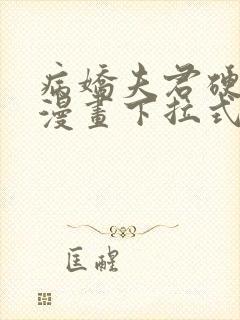 病嬌夫君硬
漫畫下拉式
匡醒